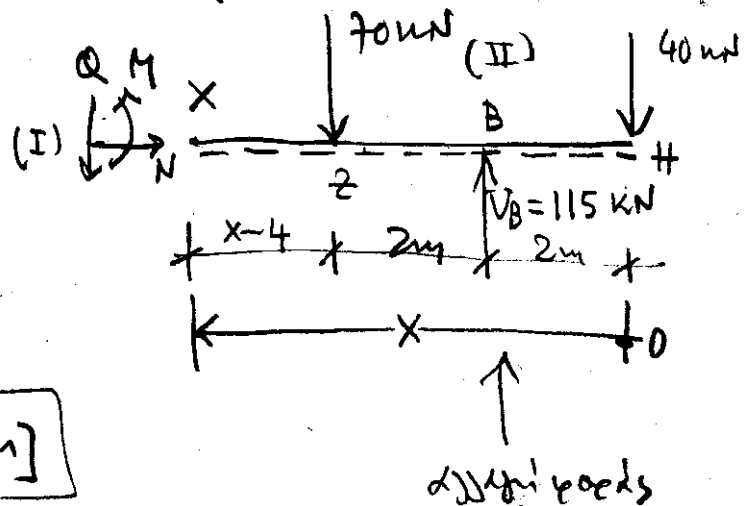 70 kN
(II)
40 kN
Q M
X
B
(I)
N
Z
H
V_B = 115 KN
x-4
2m
2m
X
0
αλλαγή φοράς